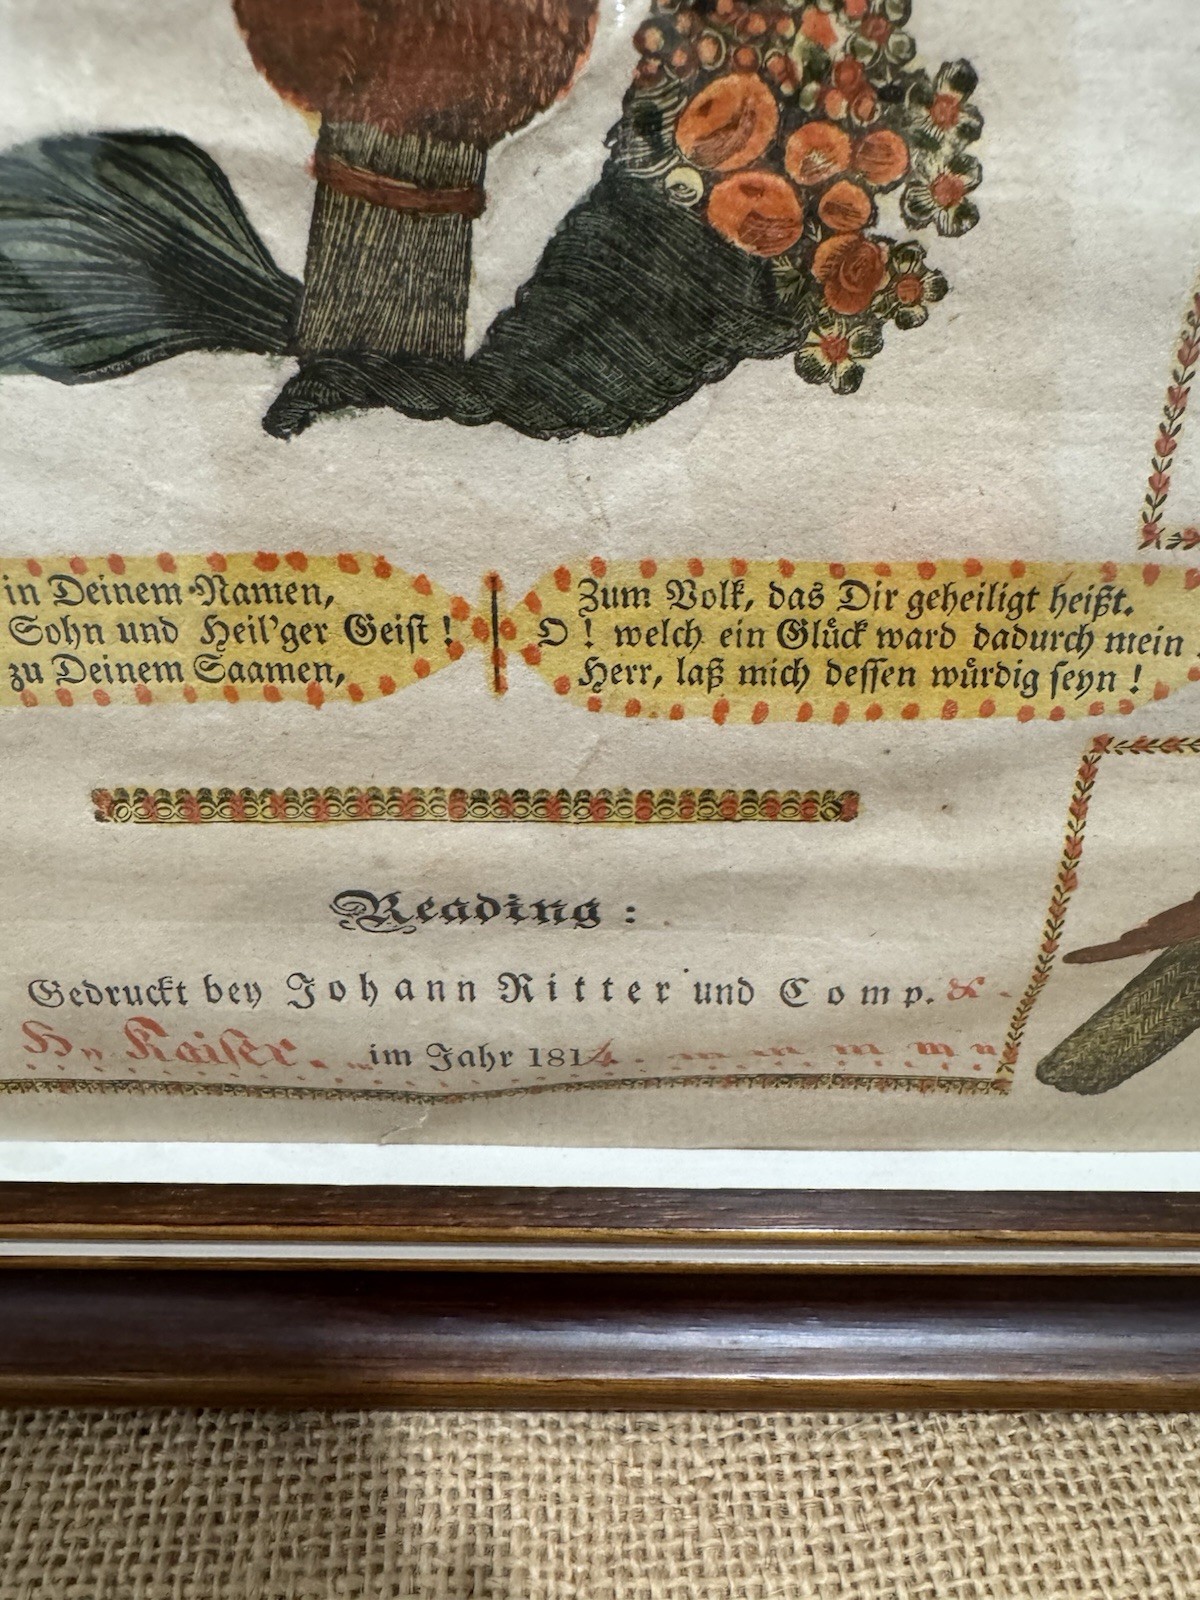 in Deinem Namen,
Sohn und Heil'ger Geist !
zu Deinem Saamen,
Zum Volk, das Dir geheiligt heißt.
O ! welch ein Glück ward dadurch mein
Herr, laß mich dessen würdig seyn !
Reading :
Gedruckt bey Johann Ritter und Comp. &
H,, Kaiser. im Jahr 1814